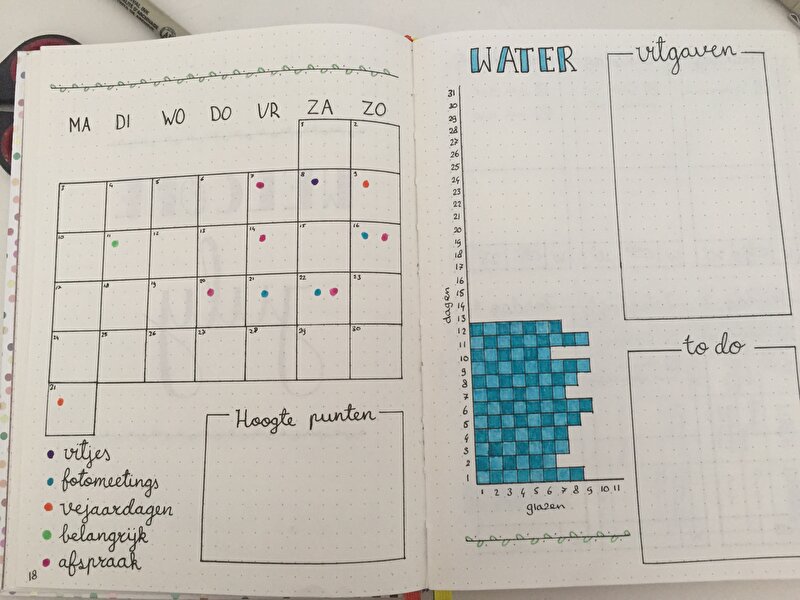 MA DI WO DO VR ZA ZO
1 2
3 4 5 6 7 8 9
10 11 12 13 14 15 16
17 18 19 20 21 22 23
24 25 26 27 28 29 30
31
Hoogte punten
uitjes
fotomeetings
vejaardagen
belangrijk
afspraak
18
WATER
31
30
29
28
27
26
25
24
23
22
21
20
19
18
17
16
15
14
13
12
11
10
9
8
7
6
5
4
3
2
1
dagen
1 2 3 4 5 6 7 8 9 10 11
glazen
uitgaven
to do